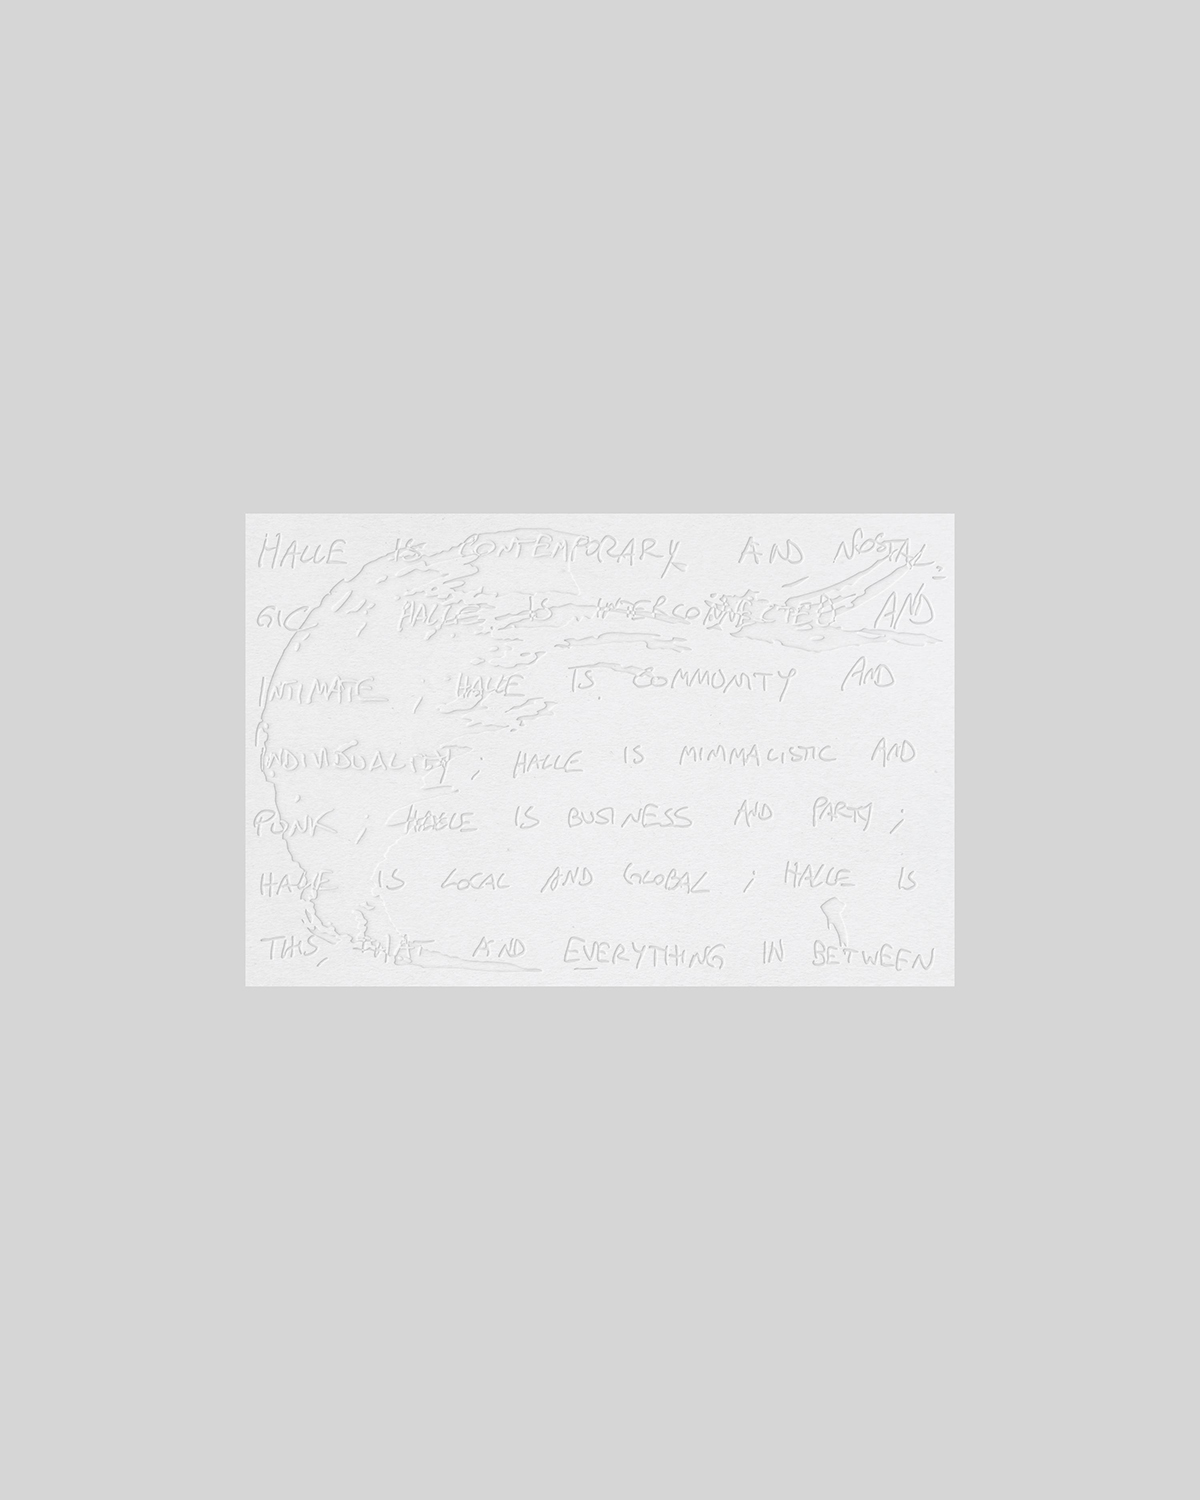 HALLE IS CONTEMPORARY AND NOSTAL-
GIC ; HALLE IS INTERCONNECTED AND
INTIMATE ; HALLE IS COMMUNITY AND
INDIVIDUALIST ; HALLE IS MINIMALISTIC AND
PUNK ; HALLE IS BUSINESS AND PARTY ;
HALLE IS LOCAL AND GLOBAL ; HALLE IS
THIS, THAT AND EVERYTHING IN BETWEEN